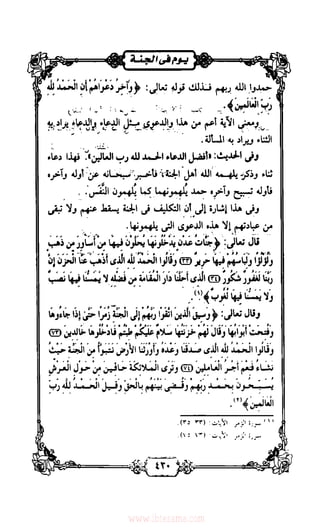 يوم فى الجنة
حمدوا الله ربهم فذلك قوله تعالى: ﴿وَآخِرُ دَعْوَاهُمْ أَنِ الْحَمْدُ لِلَّهِ
رَبِّ الْعَالَمِينَ﴾.
ومعنى الآية أعم من هذا والدعوى مثل الدعاء والدعاء يراد به
الثناء ويراد به المسألة.
وفى الحديث: «أفضل الدعاء الحمد لله رب العالمين». فهذا دعاء
ثناء وذكر يلهمه الله أهل الجنة، فأخبر سبحانه عن أوله وآخره
فأوله تسبيح وآخره حمد يلهمونهما كما يلهمون النَّفَس.
وفى هذا إشارة إلى أن التكليف فى الجنة يسقط عنهم ولا تبقى
من عبادتهم إلا هذه الدعوى التى يلهمونها.
قال تعالى: ﴿جَنَّاتُ عَدْنٍ يَدْخُلُونَهَا يُحَلَّوْنَ فِيهَا مِنْ أَسَاوِرَ مِن ذَهَبٍ
وَلُؤْلُؤًا وَلِبَاسُهُمْ فِيهَا حَرِيرٌ (٣٣) وَقَالُوا الْحَمْدُ لِلَّهِ الَّذِي أَذْهَبَ عَنَّا الْحَزَنَ إِنَّ
رَبَّنَا لَغَفُورٌ شَكُورٌ (٣٤) الَّذِي أَحَلَّنَا دَارَ الْمُقَامَةِ مِن فَضْلِهِ لا يَمَسُّنَا فِيهَا نَصَبٌ
وَلا يَمَسُّنَا فِيهَا لُغُوبٌ﴾(١).
وقال تعالى: ﴿وَسِيقَ الَّذِينَ اتَّقَوْا رَبَّهُمْ إِلَى الْجَنَّةِ زُمَرًا حَتَّىٰ إِذَا جَاءُوهَا
وَفُتِحَتْ أَبْوَابُهَا وَقَالَ لَهُمْ خَزَنَتُهَا سَلامٌ عَلَيْكُمْ طِبْتُمْ فَادْخُلُوهَا خَالِدِينَ (٧٣)
وَقَالُوا الْحَمْدُ لِلَّهِ الَّذِي صَدَقَنَا وَعْدَهُ وَأَوْرَثَنَا الأَرْضَ نَتَبَوَّأُ مِنَ الْجَنَّةِ حَيْثُ
نَشَاءُ فَنِعْمَ أَجْرُ الْعَامِلِينَ (٧٤) وَتَرَى الْمَلائِكَةَ حَافِّينَ مِنْ حَوْلِ الْعَرْشِ
يُسَبِّحُونَ بِحَمْدِ رَبِّهِمْ وَقُضِيَ بَيْنَهُم بِالْحَقِّ وَقِيلَ الْحَمْدُ لِلَّهِ رَبِّ
الْعَالَمِينَ﴾(٢).
(١) سورة الزمر الآيات: (٣٣ - ٣٥).
(٢) سورة الزمر الآيات: (٧٣ - ٧٥)
٤٢٠
www.ibtesama.com